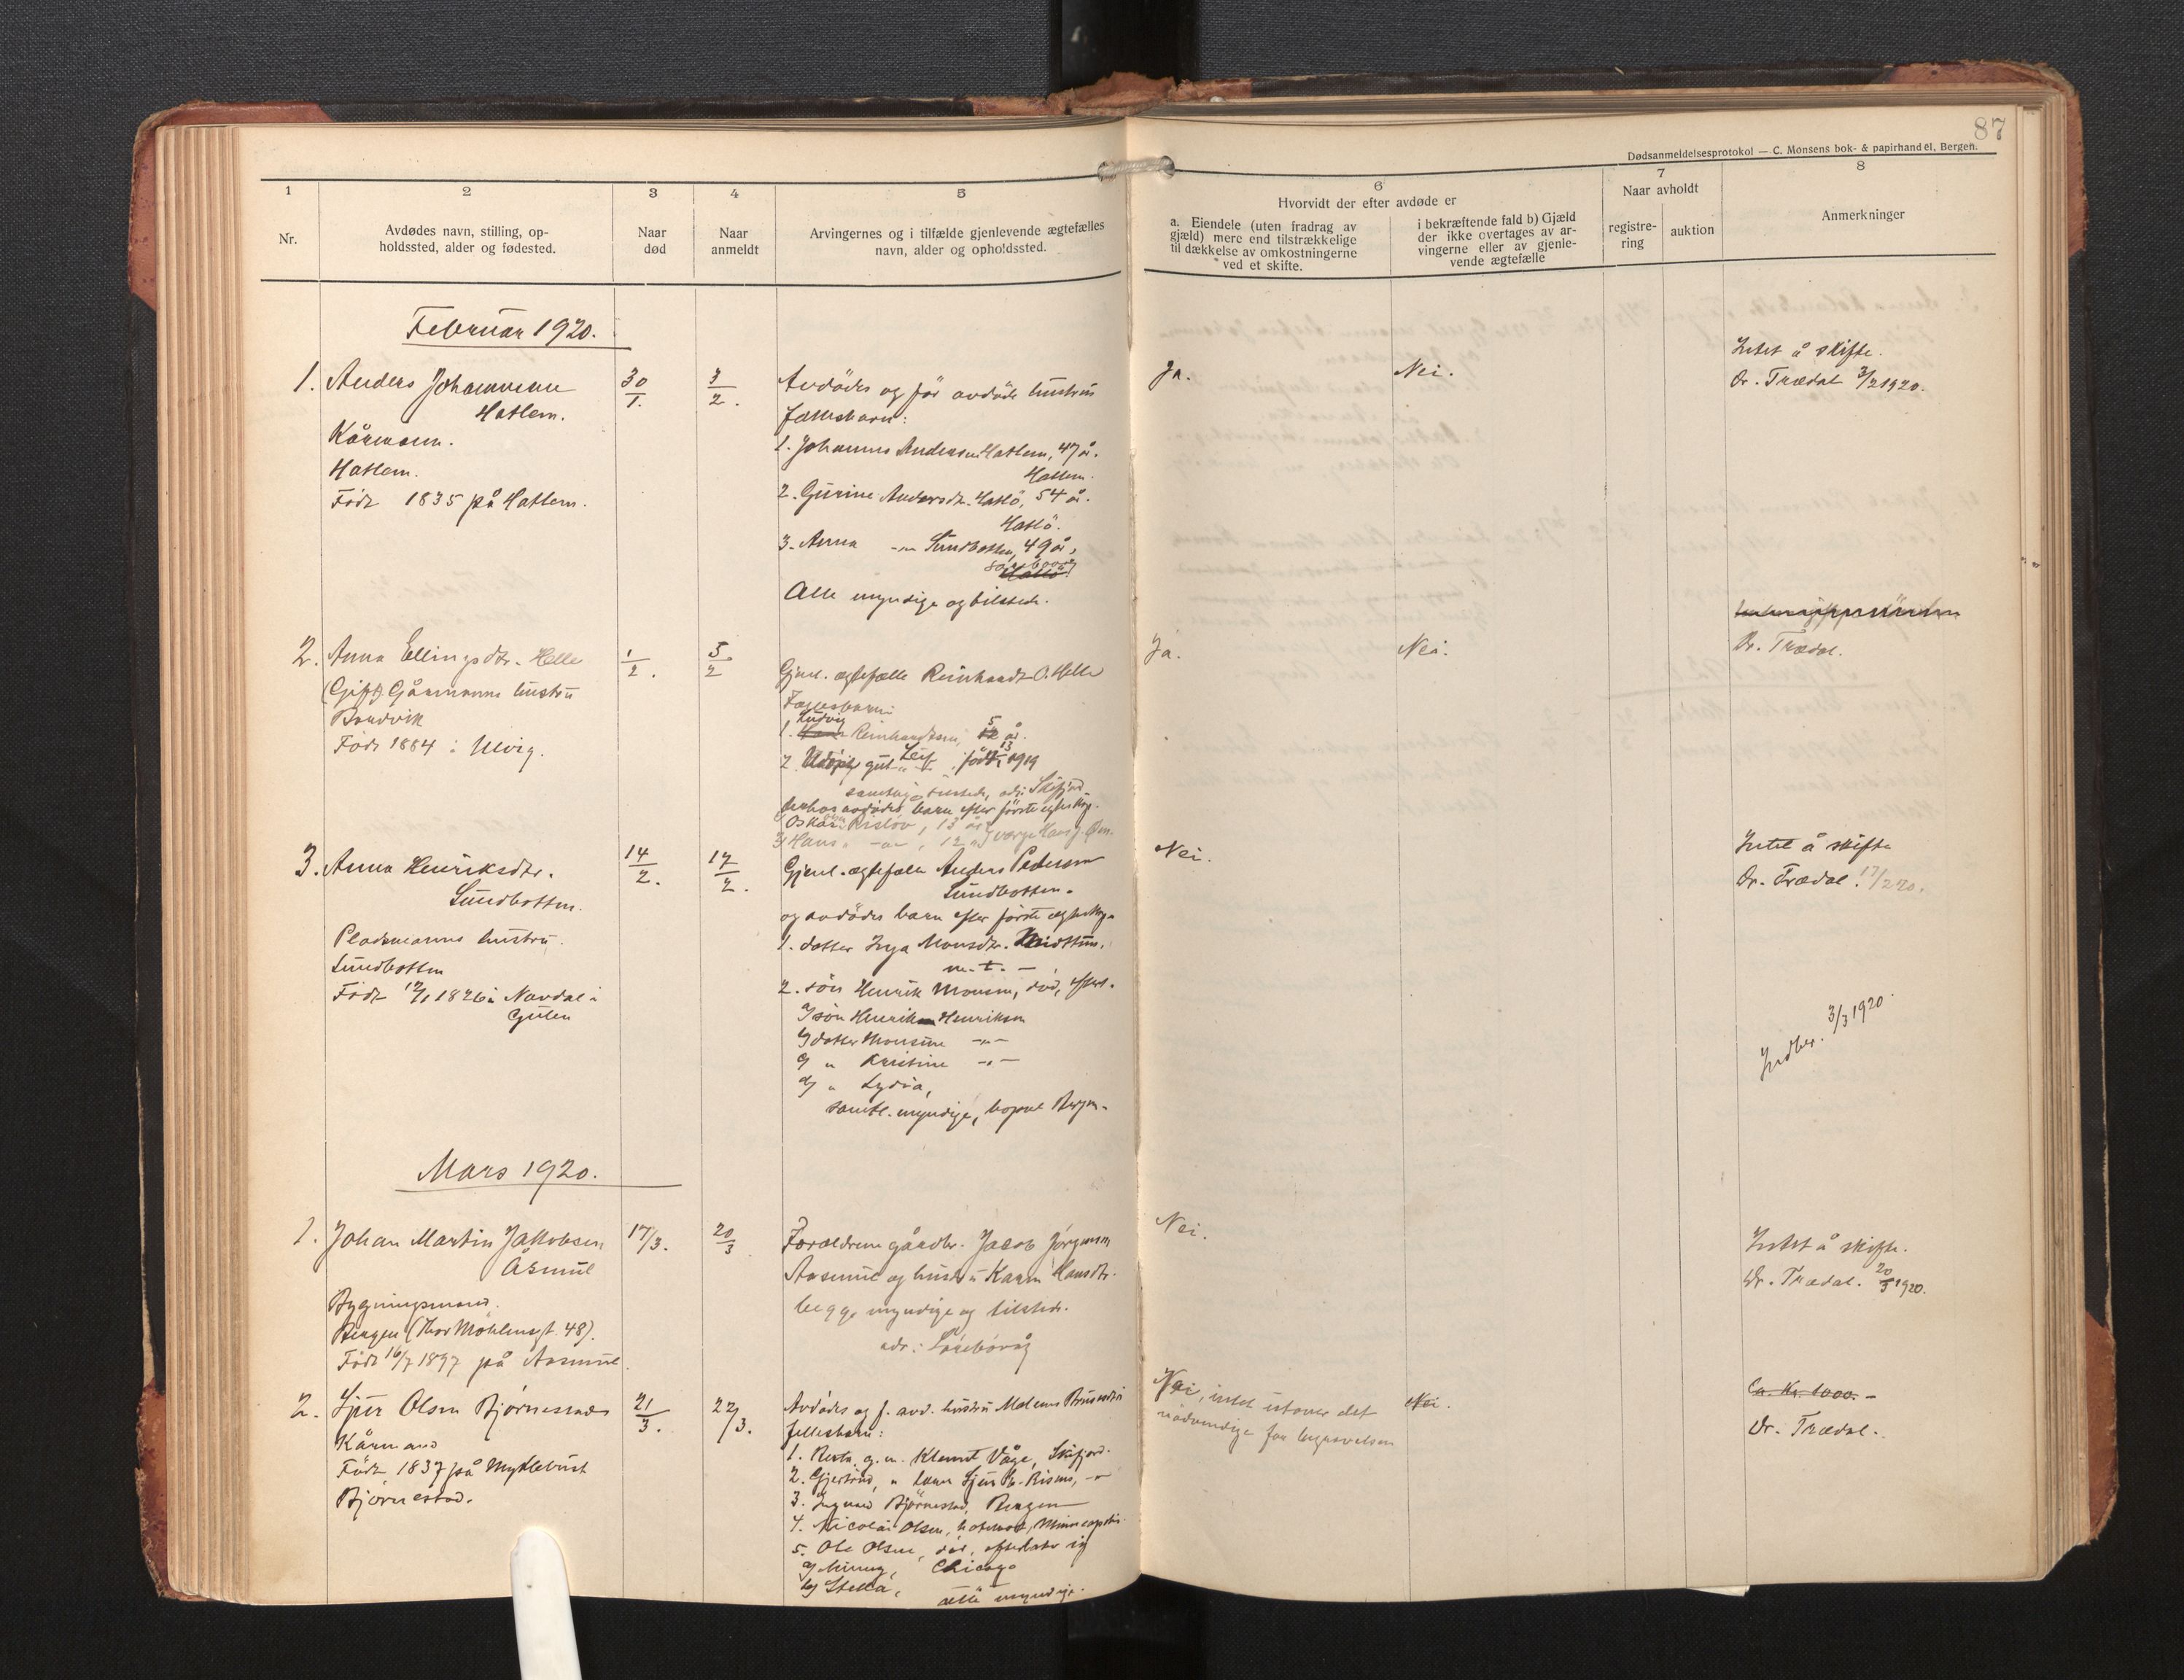 87
Dødsanmeldelsesprotokol — C. Monsens bok- & papirhandel, Bergen.
1
2
3
4
5
6
7
8
Nr.
Avdødes navn, stilling, op-
holdssted, alder og fødested.
Naar
død
Naar
anmeldt
Arvingernes og i tilfælde gjenlevende ægtefælles
navn, alder og opholdssted.
Hvorvidt der efter avdøde er
a. Eiendele (uten fradrag av
gjæld) mere end tilstrækkelige
til dækkelse av omkostningerne
ved et skifte.
i bekræftende fald b) Gjæld
der ikke overtages av ar-
vingerne eller av gjenle-
vende ægtefælle
Naar avholdt
registre-
ring
auktion
Anmerkninger
Februar 1920.
1. Anders Johannesen
Hatlem.
Kårmann.
Hatlem.
Født 1835 på Hatlem.
30/1.
3/2.
Avdødes og før avdøde hustrus
fællesbarn:
1. Johannes Andersen Hatlem, 47 år.
Hatlem.
2. Gurine Andersdtr. Hatlö, 54 år.
Hatlö.
3. Anna -"- Sundbotten, 49 år,
Hatlö
Alle myndige og tilstede.
Ja.
Nei.
Intet å skifte.
Or. Trædal 3/2 1920.
2. Anna Ellingsdtr. Helle
(Gift) Gårmanns hustru
Født 1884 i Ulvig.
1/2.
5/2
Gjenl. ægtefælle Reinhardt O. Helle
Fællesbarn:
1. Ludvig Reinhardtsen, 5 år.
2. gut Leif født 13 1919
avdødes barn efter første egteskap.
Oskar Risløv, 13 år
Hans -"-, 12 "
Ja.
Nei.
Or. Trædal.
3. Anna Henriksdtr.
Sundbotten.
Pladsmanns hustru.
Sundbotten
Født 12/1 1826 i Nordal i
Gulen
14/2.
17/2.
Gjenl. ægtefælle Anders Pedersen
Sundbotten.
og avdødes barn efter første ægteskap
1. datter Inga Monsdtr. Midttun,
m. t. —
2. søn Henrik Monsen, død, efterl.
a/ søn Henrik Henriksen
b/ datter Monsine -"-
c/ " Kristine -"-
d/ " Lydia,
samtl. myndige, bopæl Bergen.
Nei.
Intet å skifte
Or. Trædal. 17/2 20.
Indber. 3/3 1920.
Mars 1920.
1. Johan Martin Jakobsen
Åsmul
Bygningsmand.
Bergen (Thor Møhlensgt. 48).
Født 16/7 1897 på Aasmul.
17/3.
20/3
Forældrene gårdbr. Jacob Jörgensen
Aasmul og hustru Karen Hansdtr.
begge myndige og tilstede.
adr: Sörebövåg
Nei.
Intet å skifte.
Or. Trædal. 20/3 1920.
2. Sjur Olsen Bjørnestad
Kårmand
Født 1837 på Myklebust
Bjørnestad.
21/3.
22/3.
Avdødes og f. avd. hustru Malene
fellesbarn:
1. g. m. Klemet Våge, Skifjord.
2. Gjertrud,
3. Bjørnestad, Bergen
4. Nicolai Olsen, Minneapolis.
5. Ole Olsen, død, efterlater sig
a/ Minny, Chicago
b/ Stella,
alle myndige.
Nei, intet utover det
nødvendige for begravelsen
Nei.
Ca. Kr. 1000.-
Or. Trædal.